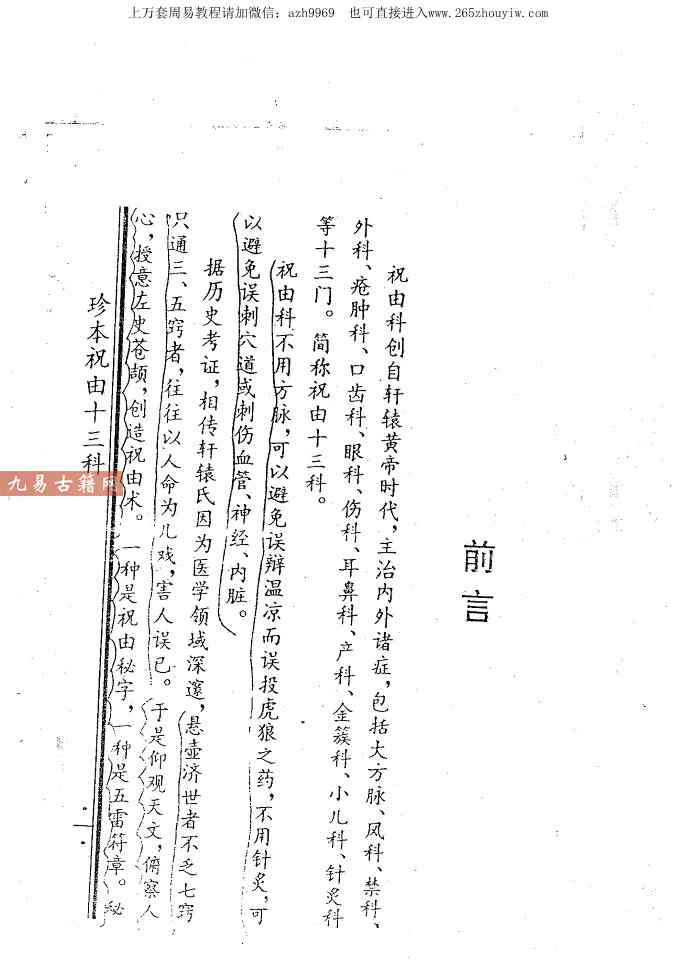 上万套周易教程请加微信：azh9969　也可直接进入www.265zhouyiw.com
前言
祝由科创自轩辕黄帝时代，主治内外诸症，包括大方脉、风科、禁科、
外科、疮肿科、口齿科、眼科、伤科、耳鼻科、产科、金簇科、小儿科、针灸科
等十三门。简称祝由十三科。
祝由科不用方脉，可以避免误辩温凉而误投虎狼之药，不用针灸，可
以避免误刺穴道或刺伤血管、神经、内脏。
据历史考证，相传轩辕氏因为医学领域深邃，悬壶济世者不乏七窍
只通三、五窍者，往往以人命为儿戏，害人误己。于是仰观天文，俯察人
心，授意左史苍颉，创造祝由术。一种是祝由秘字，一种是五雷符章。秘
珍本祝由十三科
一
九易古籍网